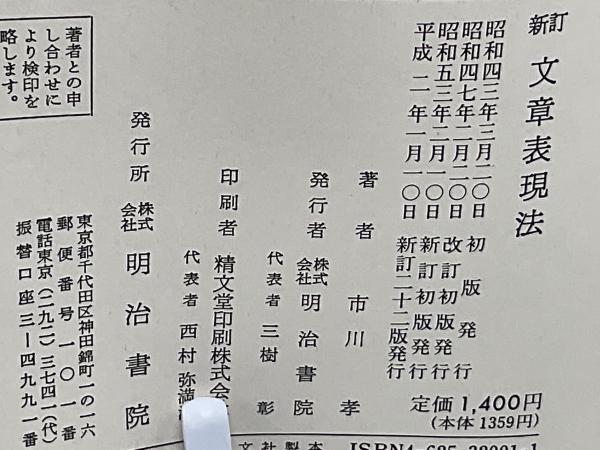 新訂 文章表現法
昭和四三年三月二〇日 初版発行
昭和四七年二月二〇日 改訂初版発行
昭和五三年二月一〇日 新訂初版発行
平成二年一月一〇日 新訂二十二版発行
定価1,400円
(本体1359円)
著者 市川孝
発行者 株式会社 明治書院
代表者 三樹彰
印刷者 精文堂印刷株式会
代表者 西村弥満
発行所 株式会社 明治書院
東京都千代田区神田錦町一の一六
郵便番号一〇一番
電話東京(二九二)三七四一(代)
振替口座三―四九九一番
著者との申
し合わせに
より検印を
略します。
文社製本
ISBN4-625-